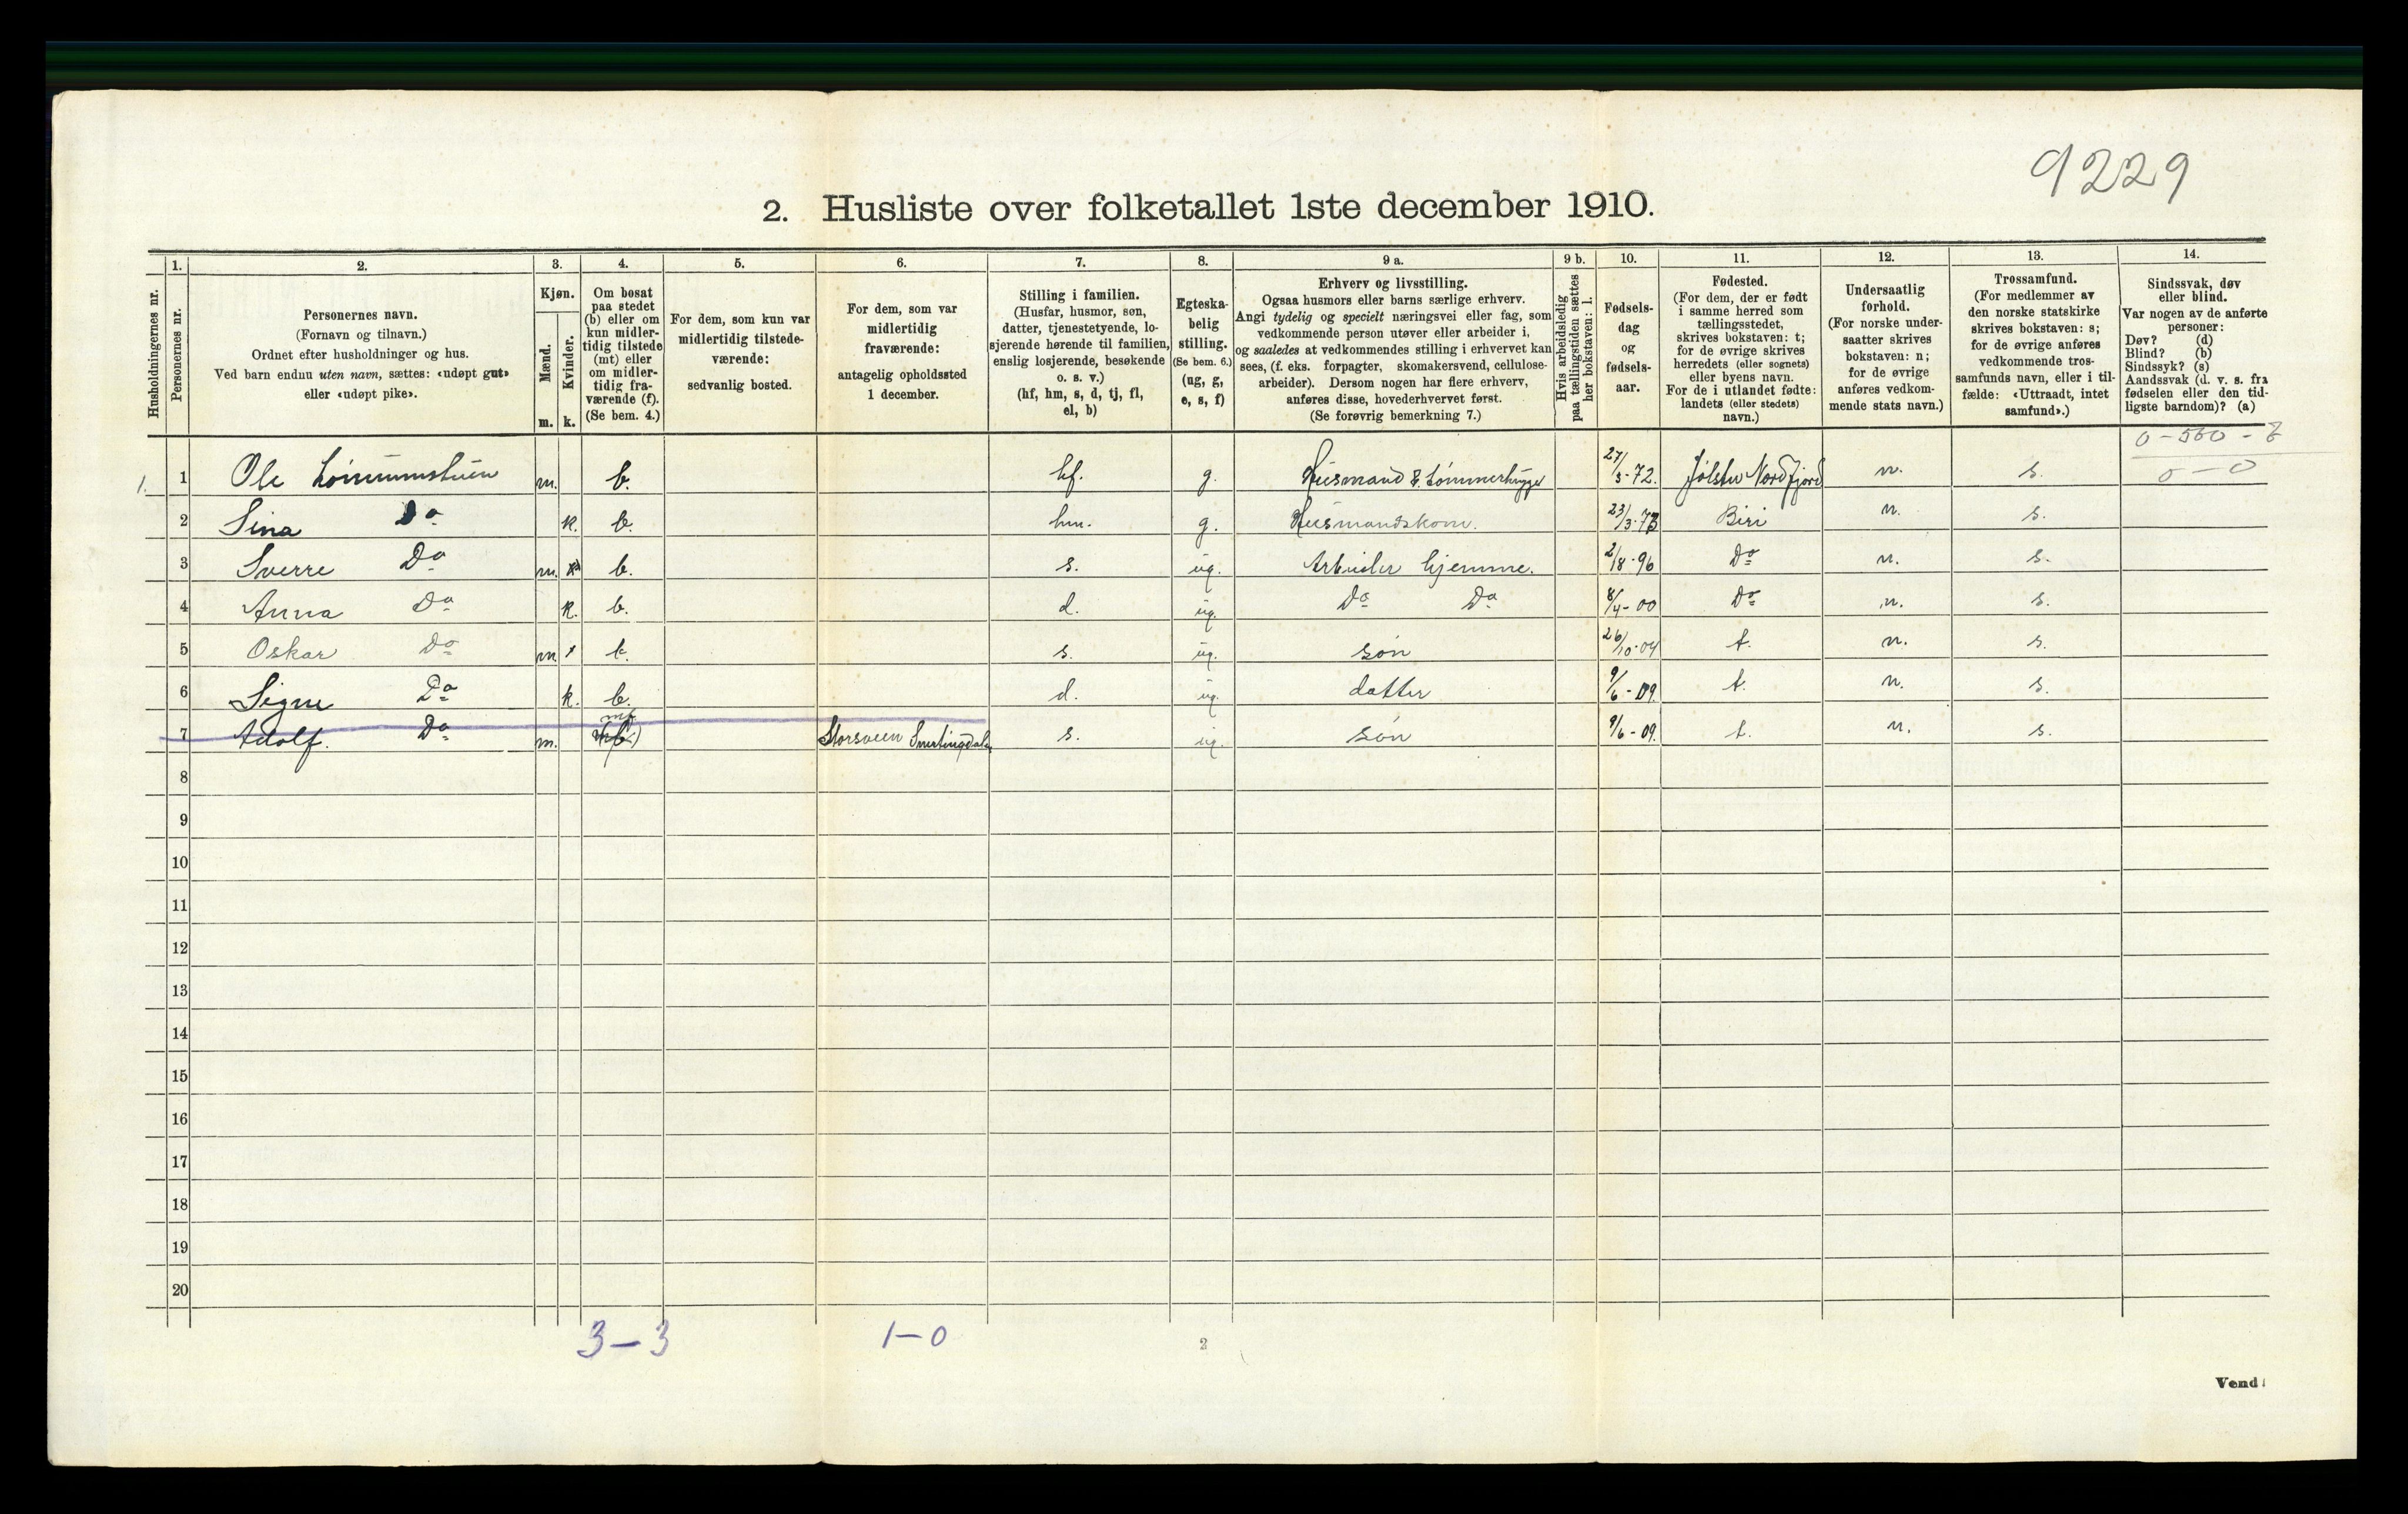 9229
2. Husliste over folketallet 1ste december 1910.
Husholdningernes nr.
1. Personernes nr.
2. Personernes navn.
(Fornavn og tilnavn.)
Ordnet efter husholdninger og hus.
Ved barn endnu uten navn, sættes: «udøpt gut»
eller «udøpt pike».
3. Kjøn.
Mænd. m.
Kvinder. k.
4. Om bosat
paa stedet
(b) eller om
kun midler-
tidig tilstede
(mt) eller
om midler-
tidig fra-
værende (f).
(Se bem. 4.)
5. For dem, som kun var
midlertidig tilstede-
værende:
sedvanlig bosted.
6. For dem, som var
midlertidig
fraværende:
antagelig opholdssted
1 december.
7. Stilling i familien.
(Husfar, husmor, søn,
datter, tjenestetyende, lo-
sjerende hørende til familien,
enslig losjerende, besøkende
o. s. v.)
(hf, hm, s, d, tj, fl,
el, b)
8. Egteska-
belig
stilling.
(Se bem. 6.)
(ug, g,
e, s, f)
9 a. Erhverv og livsstilling.
Ogsaa husmors eller barns særlige erhverv.
Angi tydelig og specielt næringsvei eller fag, som
vedkommende person utøver eller arbeider i,
og saaledes at vedkommendes stilling i erhvervet kan
sees, (f. eks. forpagter, skomakersvend, cellulose-
arbeider). Dersom nogen har flere erhverv,
anføres disse, hovederhvervet først.
(Se forøvrig bemerkning 7.)
9 b. Hvis arbeidsledig
paa tællingstiden sættes
her bokstaven: l.
10. Fødsels-
dag
og
fødsels-
aar.
11. Fødested.
(For dem, der er født
i samme herred som
tællingsstedet,
skrives bokstaven: t;
for de øvrige skrives
herredets (eller sognets)
eller byens navn.
For de i utlandet fødte:
landets (eller stedets)
navn.)
12. Undersaatlig
forhold.
(For norske under-
saatter skrives
bokstaven: n;
for de øvrige
anføres vedkom-
mende stats navn.)
13. Trossamfund.
(For medlemmer av
den norske statskirke
skrives bokstaven: s;
for de øvrige anføres
vedkommende tros-
samfunds navn, eller i til-
fælde: «Uttraadt, intet
samfund».)
14. Sindssvak, døv
eller blind.
Var nogen av de anførte
personer:
Døv? (d)
Blind? (b)
Sindssyk? (s)
Aandssvak (d. v. s. fra
fødselen eller den tid-
ligste barndom)? (a)
0-0
1. 1 Ole m. b. hf. g. Husmand & tømmerhugger 27/3-72. Jølster Nordfjord n. s.
2 Sina Do k. b. hm. g. Husmandskone. 23/3-73 Biri n. s.
3 Sverre Do m. b. s. ug. Arbeider hjemme. 2/8-96 Do n. s.
4 Anna Do k. b. d. ug. Do Do 8/4-00 Do n. s.
5 Oskar Do m b. s. ug. søn 26/10-04 t. n. s.
6 Signe Do k. b. d. ug. datter 9/6-09. t. n. s.
7 Adolf. Do m. Storsveen Snertingdalen s. ug. søn 9/6-09. t. n. s.
8
9
10
11
12
13
14
15
16
17
18
19
20
3-3 1-0
2
Vend!